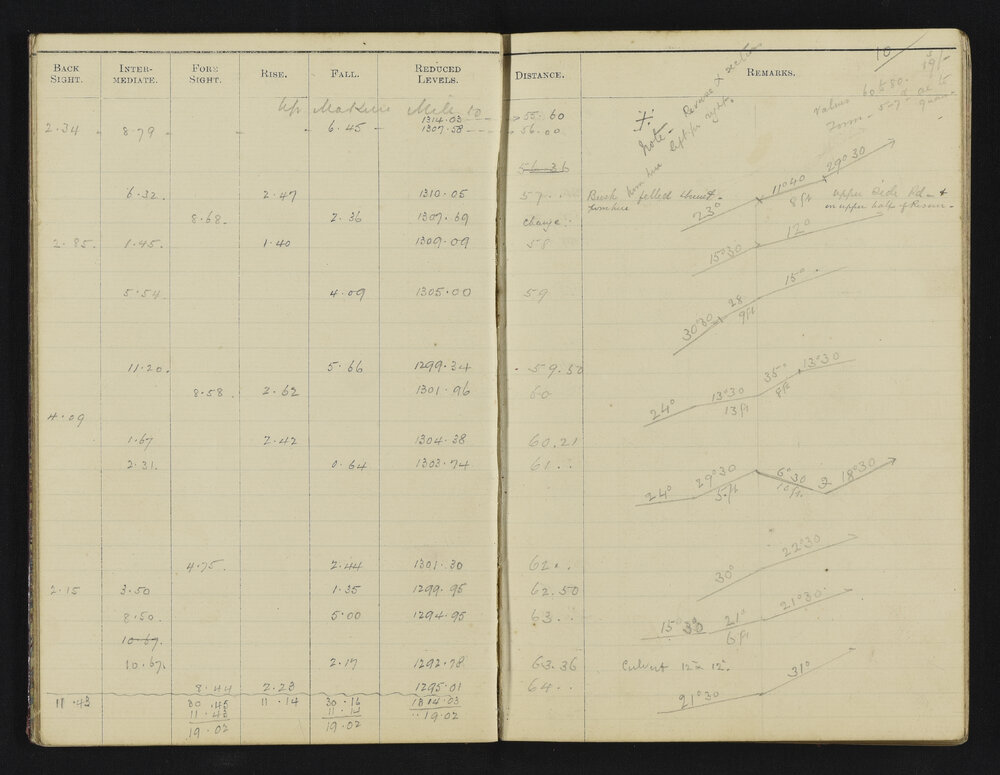 BACK SIGHT. INTER-MEDIATE. FORE SIGHT. RISE. FALL. REDUCED LEVELS. DISTANCE. REMARKS.
10
19/-
Up Mile 10
1314.03 55.60
2.34 8.79 6.45 1307.58 56.00
Note - Reverse X section
left for right.
Values 60 to 80.
56.36
6.32 2.47 1310.05 57 . . Bush felled
23° 11°40 29°30
8 ft
upper side Rd
on upper half of Reserve -
8.68. 2.36 1307.69 Change.
2.85. 1.45. 1.40 1309.09 58
15°30 12°
5.54 4.09 1305.00 59
30°30 28 15°
9ft
11.20. 5.66 1299.34 59.50
8.58. 2.62 1301.96 60
24° 13°30 35° 13°30
13ft 8ft
4.09
1.67 2.42 1304.38 60.21
2.31. 0.64 1303.74 61 . .
24° 29°30 6°30 2 18°30
5.ft 10ft.
4.75. 2.44 1301.30 62 . .
30° 22°30
2.15 3.50 1.35 1299.95 62.50
8.50. 5.00 1294.95 63 . .
15°30 21° 21°30
6ft
10.67.
10.67. 2.17 1292.78 63.36 Culvert 12 x 12.
8.44 2.23 1295.01 64 . .
21°30 31°
11.43 30.45 11.14 30.16 1314.03
11.43 11.14 19.02
19.02 19.02